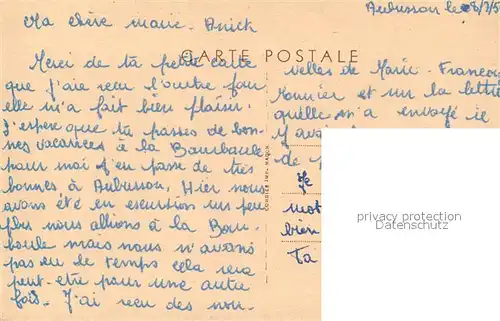 Aubusson le 8/7/5
Ma chère marie-Anick
CARTE POSTALE
Merci de ta petite carte
que j'aie reçu l'autre jour
elle m'a fait bien plaisir.
J'espère que tu passes de bon-
nes vacances à la Bourboule
pour moi j'en passe de très
bonnes à Aubusson. Hier nous
avons été en escurtion un peu
plus nous allions à la Bour-
boule mais nous n'avons
pas eu le temps cela sera
peut-etre pour une autre
fois. J'ai reçu des nou-
velles de Marie-Franço
et sur la lettre
qu'elle m'a envoyé ie
de
Je
mot
bien
Ta
privacy protection
Datenschutz